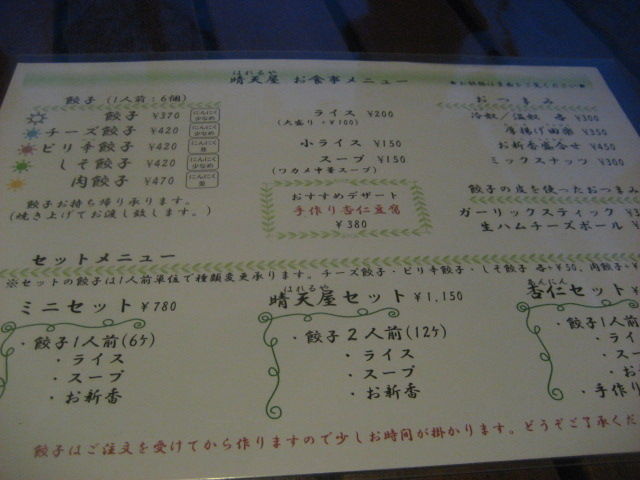 はれるや
晴天屋 お食事メニュー
餃子 (1人前：6個)
餃子 ¥370 にんにく少なめ
チーズ餃子 ¥420 にんにく少なめ
ピリ辛餃子 ¥420 にんにく
しそ餃子 ¥420 にんにく少なめ
肉餃子 ¥470 にんにく
餃子お持ち帰り承ります。
(焼き上げてお渡し致します。)
ライス ¥200
(大盛り・+¥100)
小ライス ¥150
スープ ¥150
(ワカメ中華スープ)
おすすめデザート
手作り杏仁豆腐
¥380
おつまみ
¥300
厚揚げ ¥350
お新香盛合せ ¥450
ミックスナッツ ¥300
餃子の皮を使ったおつまみ
ガーリックスティック
生ハムチーズボール
セットメニュー
※セットの餃子は1人前単位で種類変更承ります。チーズ餃子・ピリ辛餃子・しそ餃子 各+¥50、肉餃子+¥
ミニセット ¥780
・餃子1人前(6ケ)
・ライス
・スープ
・お新香
はれるや
晴天屋セット ¥1,150
・餃子2人前(12ケ)
・ライス
・スープ
・お新香
あんにん
杏仁セット
・餃子1人前
・ライ
・スー
・お
・手作り
餃子はご注文を受けてから作りますので少しお時間が掛かります。どうぞご了承くだ